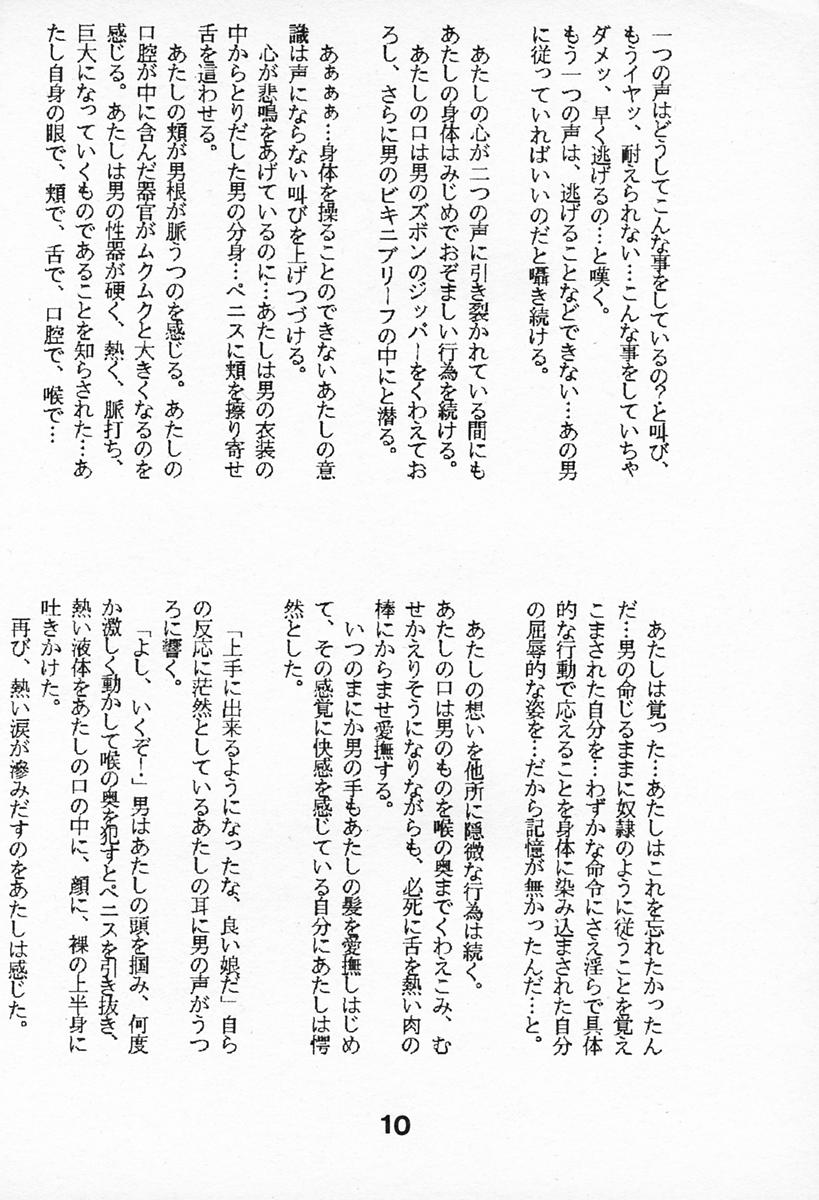 一つの声はどうしてこんな事をしているの?と叫び、
もうイヤッ、耐えられない…こんな事をしていちゃ
ダメッ、早く逃げるの…と嘆く。
もう一つの声は、逃げることなどできない…あの男
に従っていればいいのだと囁き続ける。
あたしの心が二つの声に引き裂かれている間にも
あたしの身体はみじめでおぞましい行為を続ける。
あたしの口は男のズボンのジッパーをくわえてお
ろし、さらに男のビキニブリーフの中にと潜る。
あぁぁぁ…身体を操ることのできないあたしの意
識は声にならない叫びを上げつづける。
心が悲鳴をあげているのに…あたしは男の衣装の
中からとりだした男の分身…ペニスに頬を擦り寄せ
舌を這わせる。
あたしの頬が男根が脈うつのを感じる。あたしの
口腔が中に含んだ器官がムクムクと大きくなるのを
感じる。あたしは男の性器が硬く、熱く、脈打ち、
巨大になっていくものであることを知らされた…あ
たし自身の眼で、頬で、舌で、口腔で、喉で…
あたしは覚った…あたしはこれを忘れたかったん
だ…男の命じるままに奴隷のように従うことを覚え
こまされた自分を…わずかな命令にさえ淫らで具体
的な行動で応えることを身体に染み込まされた自分
の屈辱的な姿を…だから記憶が無かったんだ…と。
あたしの想いを他所に隠微な行為は続く。
あたしの口は男のものを喉の奥までくわえこみ、む
せかえりそうになりながらも、必死に舌を熱い肉の
棒にからませ愛撫する。
いつのまにか男の手もあたしの髪を愛撫しはじめ
て、その感覚に快感を感じている自分にあたしは愕
然とした。
「上手に出来るようになったな、良い娘だ」自ら
の反応に茫然としているあたしの耳に男の声がうつ
ろに響く。
「よし、いくぞ!」男はあたしの頭を掴み、何度
か激しく動かして喉の奥を犯すとペニスを引き抜き、
熱い液体をあたしの口の中に、顔に、裸の上半身に
吐きかけた。
再び、熱い涙が滲みだすのをあたしは感じた。
10